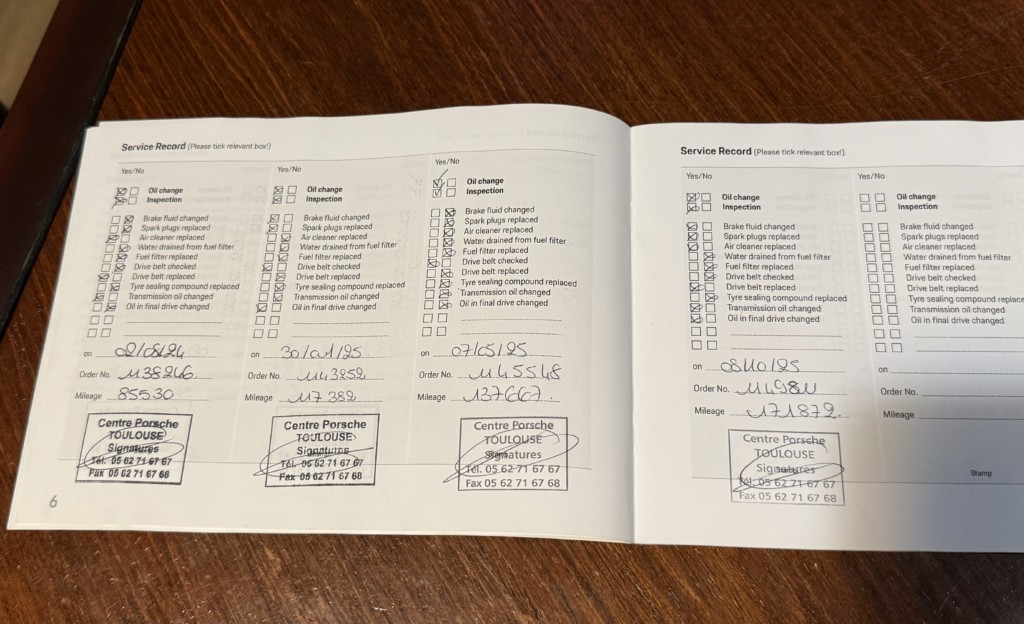 Service Record (Please tick relevant box!)
Yes/No
Oil change
Inspection
Brake fluid changed
Spark plugs replaced
Air cleaner replaced
Water drained from fuel filter
Fuel filter replaced
Drive belt checked
Drive belt replaced
Tyre sealing compound replaced
Transmission oil changed
Oil in final drive changed
on 02/08/24
Order No. 1138246
Mileage 85530
Centre Porsche
TOULOUSE
Signatures
Tél. 05 62 71 67 67
Fax 05 62 71 67 68
Yes/No
Oil change
Inspection
Brake fluid changed
Spark plugs replaced
Air cleaner replaced
Water drained from fuel filter
Fuel filter replaced
Drive belt checked
Drive belt replaced
Tyre sealing compound replaced
Transmission oil changed
Oil in final drive changed
on 30/01/25
Order No. 1143852
Mileage 117 382
Centre Porsche
TOULOUSE
Signatures
Tél. 05 62 71 67 67
Fax 05 62 71 67 68
Yes/No
Oil change
Inspection
Brake fluid changed
Spark plugs replaced
Air cleaner replaced
Water drained from fuel filter
Fuel filter replaced
Drive belt checked
Drive belt replaced
Tyre sealing compound replaced
Transmission oil changed
Oil in final drive changed
on 07/05/25
Order No. 1145548
Mileage 137667.
Centre Porsche
TOULOUSE
Signatures
Tél. 05 62 71 67 67
Fax 05 62 71 67 68
6
Service Record (Please tick relevant box!)
Yes/No
Oil change
Inspection
Brake fluid changed
Spark plugs replaced
Air cleaner replaced
Water drained from fuel filter
Fuel filter replaced
Drive belt checked
Drive belt replaced
Tyre sealing compound replaced
Transmission oil changed
Oil in final drive changed
on 08/10/25
Order No.
Mileage 171872.
Centre Porsche
TOULOUSE
Signatures
Tél. 05 62 71 67 67
Fax 05 62 71 67 68
Yes/No
Oil change
Inspection
Brake fluid changed
Spark plugs replaced
Air cleaner replaced
Water drained from fuel filter
Fuel filter replaced
Drive belt checked
Drive belt replaced
Tyre sealing compound replace
Transmission oil changed
Oil in final drive changed
on
Order No.
Mileage
Stamp